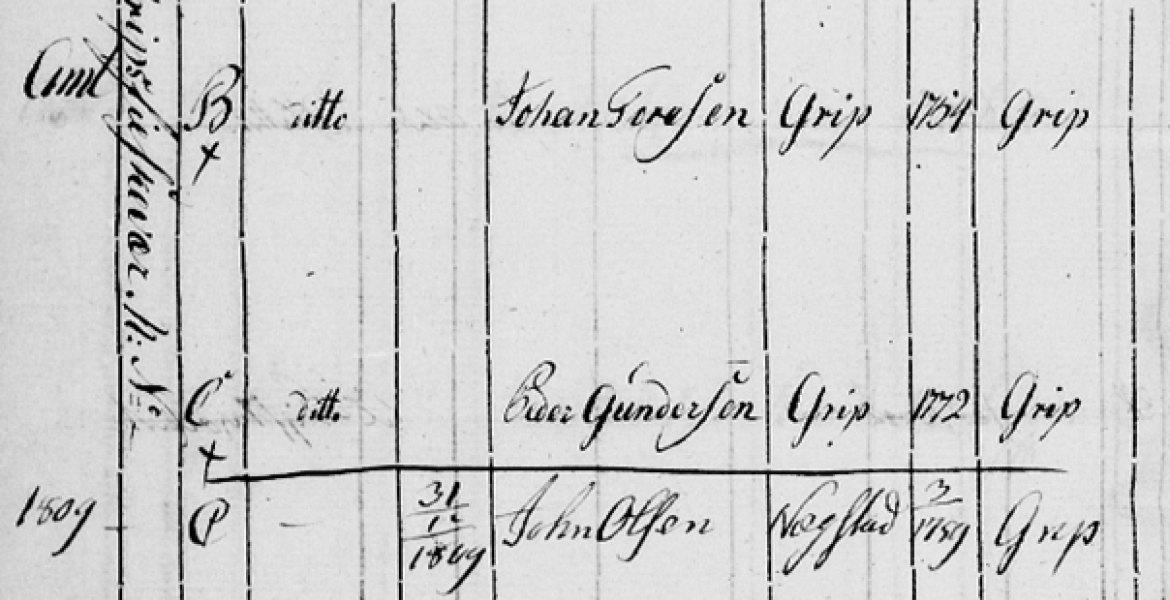 Amt
B ditto Johan Toresen Grip 1754 Grip
+
C ditto Peder Gundersen Grip 1772 Grip
+
1809 - P - 31/12 1809 John Olsen Nægstad 3/1789 Grip